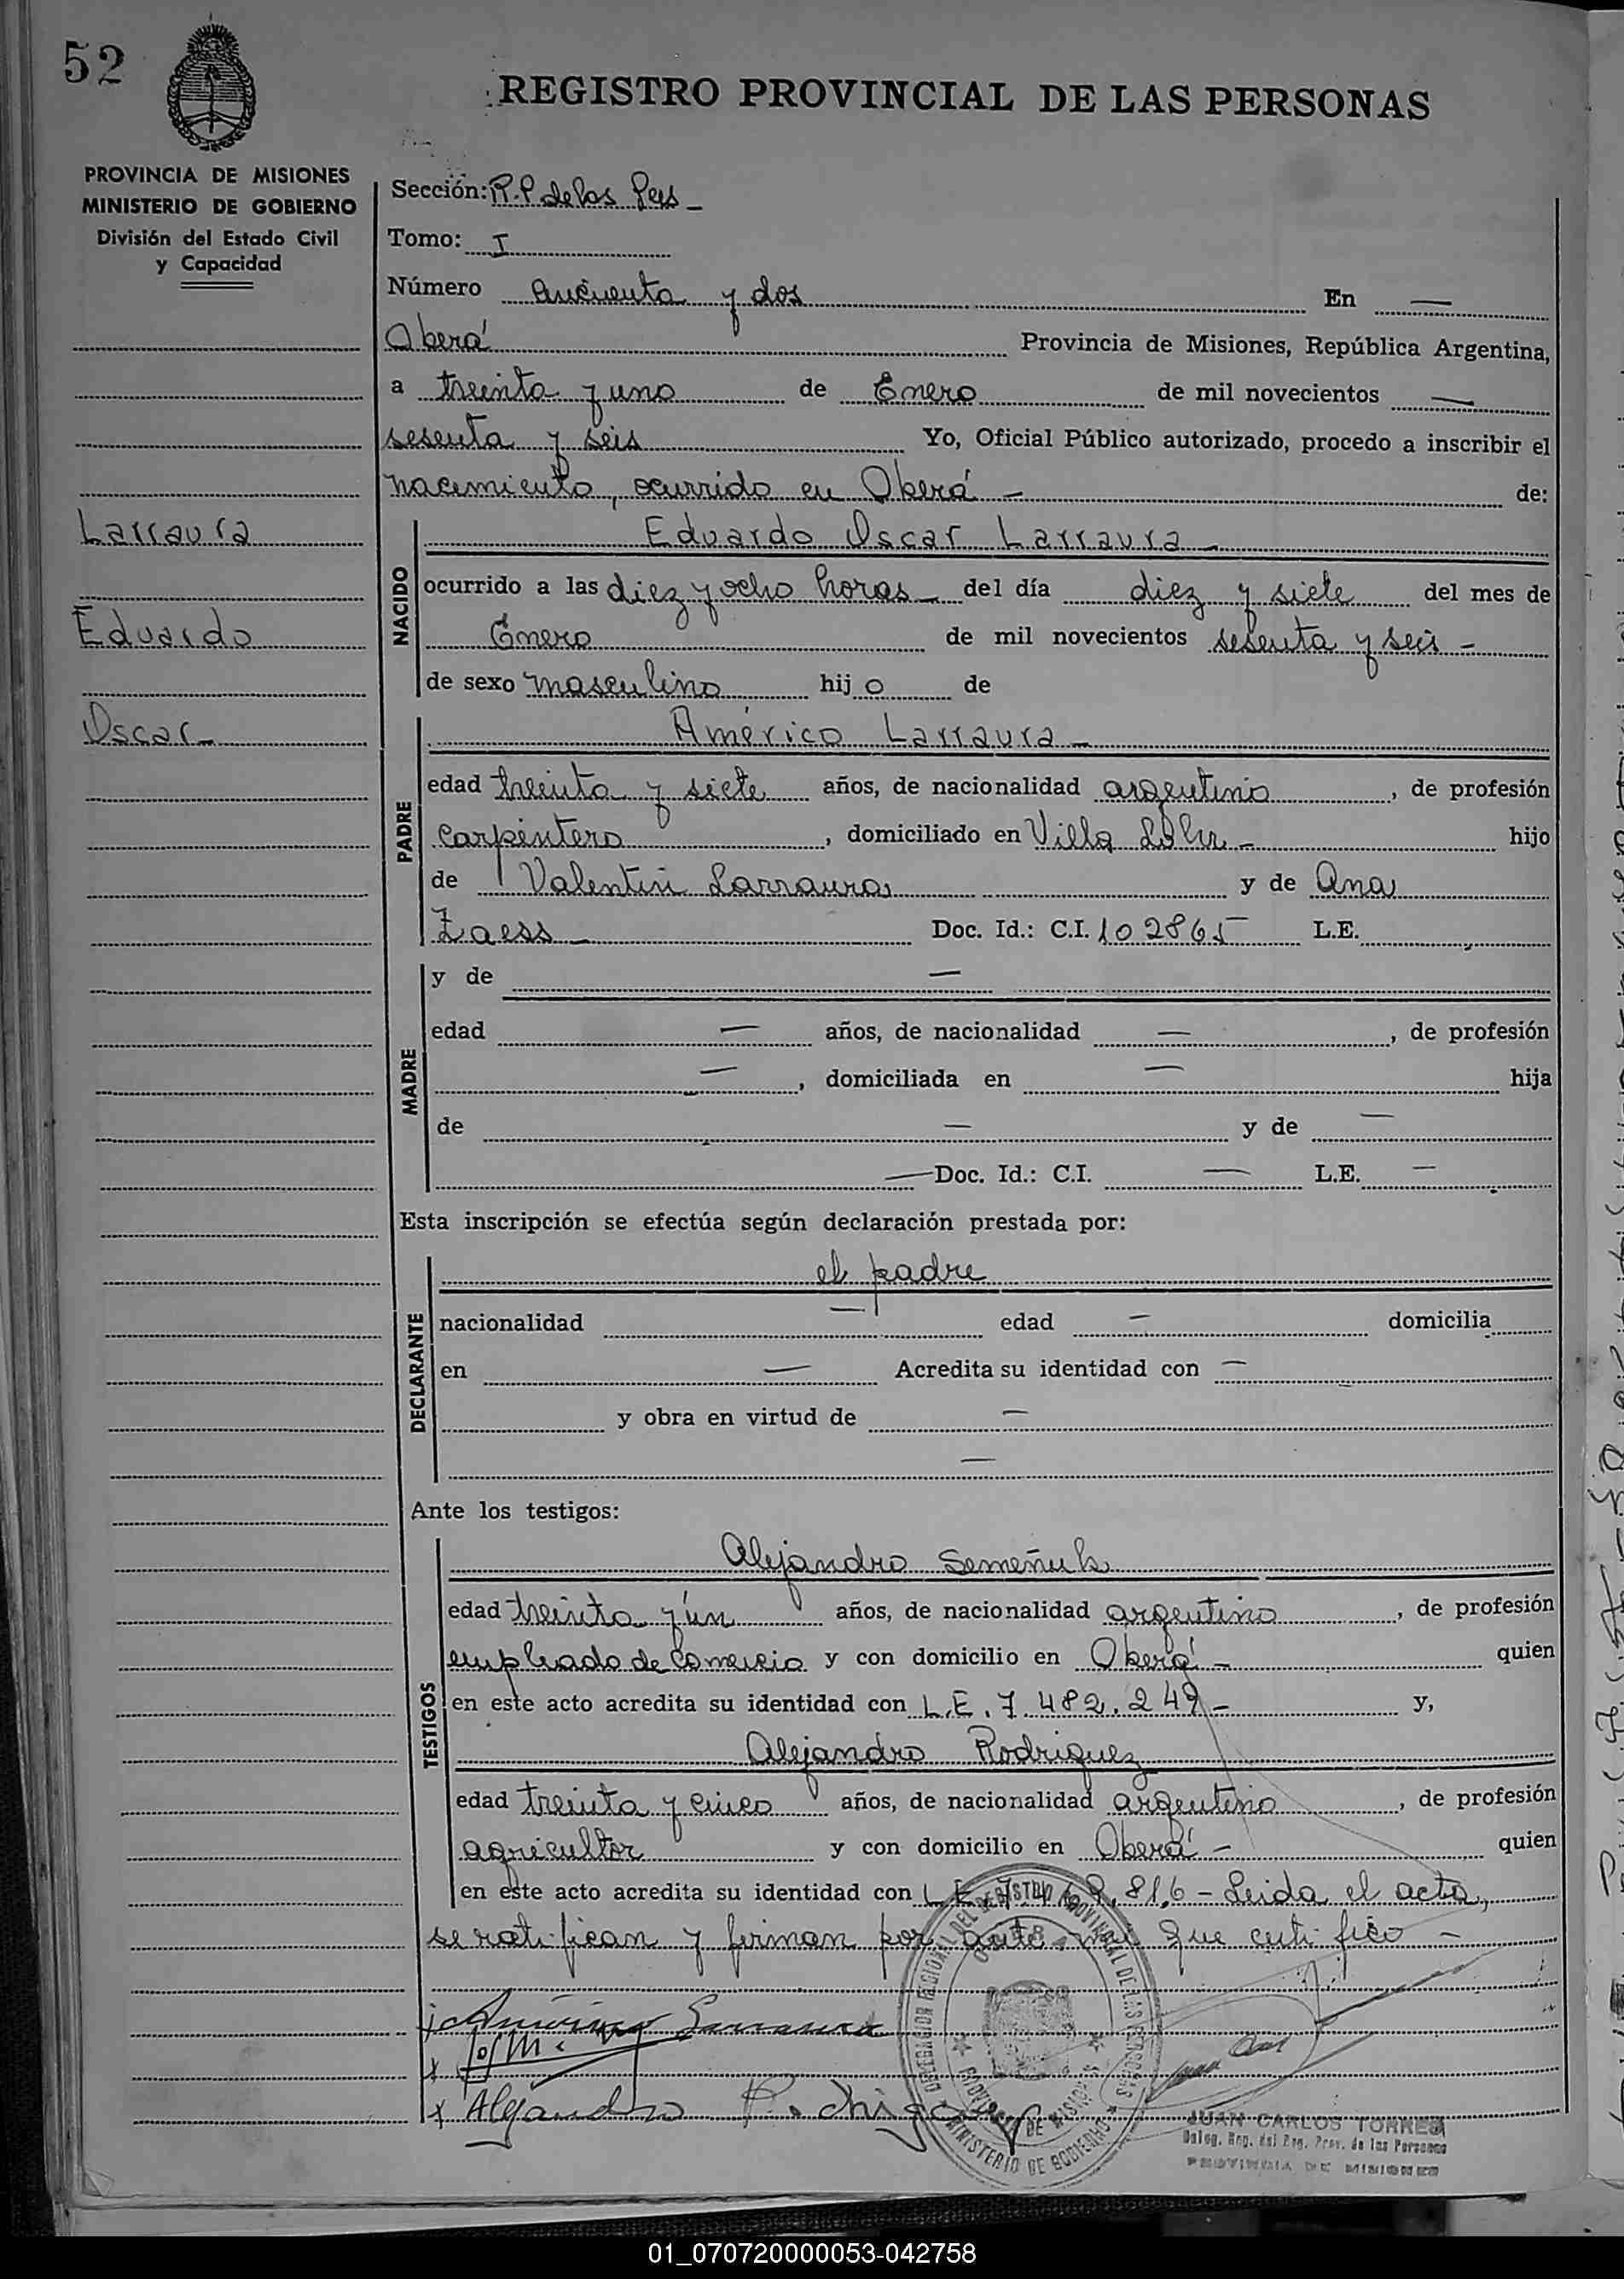 52
REGISTRO PROVINCIAL DE LAS PERSONAS
PROVINCIA DE MISIONES
MINISTERIO DE GOBIERNO
División del Estado Civil
y Capacidad
Sección: R.P. de las Pers -
Tomo: I
Número cincuenta y dos En —
Oberá Provincia de Misiones, República Argentina,
a treinta y uno de Enero de mil novecientos —
sesenta y seis Yo, Oficial Público autorizado, procedo a inscribir el
nacimiento, ocurrido en Oberá - de:
Larraura
Eduardo
Oscar -
NACIDO
Eduardo Oscar Larraura -
ocurrido a las diez y ocho horas - del día diez y siete del mes de
Enero de mil novecientos sesenta y seis -
de sexo masculino hijo de
PADRE
Américo Larraura -
edad treinta y siete años, de nacionalidad argentino, de profesión
carpintero, domiciliado en Villa - hijo
de Valentin Larraura y de Ana
Zaess - Doc. Id.: C.I. 102865 L.E.
MADRE
y de —
edad — años, de nacionalidad —, de profesión
—, domiciliada en — hija
de — y de —
— Doc. Id.: C.I. — L.E. —
Esta inscripción se efectúa según declaración prestada por:
DECLARANTE
el padre
nacionalidad — edad — domicilia
en — Acredita su identidad con —
y obra en virtud de —
—
Ante los testigos:
TESTIGOS
Alejandro Semeñuk
edad treinta y un años, de nacionalidad argentino, de profesión
empleado de Comercio y con domicilio en Oberá - quien
en este acto acredita su identidad con L.E. 7.482.249 - y,
Alejandro Rodriguez
edad treinta y cinco años, de nacionalidad argentino, de profesión
agricultor y con domicilio en Oberá - quien
en este acto acredita su identidad con L.E. - Leida el acta,
se ratifican y firman por ante mi que certifico -
Américo Larraura
x
x Alejandro Rodrigez
DELEGACION REGIONAL DEL REGISTRO PROVINCIAL DE LAS PERSONAS
PROVINCIA DE MISIONES
MINISTERIO DE GOBIERNO
JUAN CARLOS TORRES
Deleg. Reg. del Reg. Prov. de las Personas
PROVINCIA DE MISIONES
01_070720000053-042758